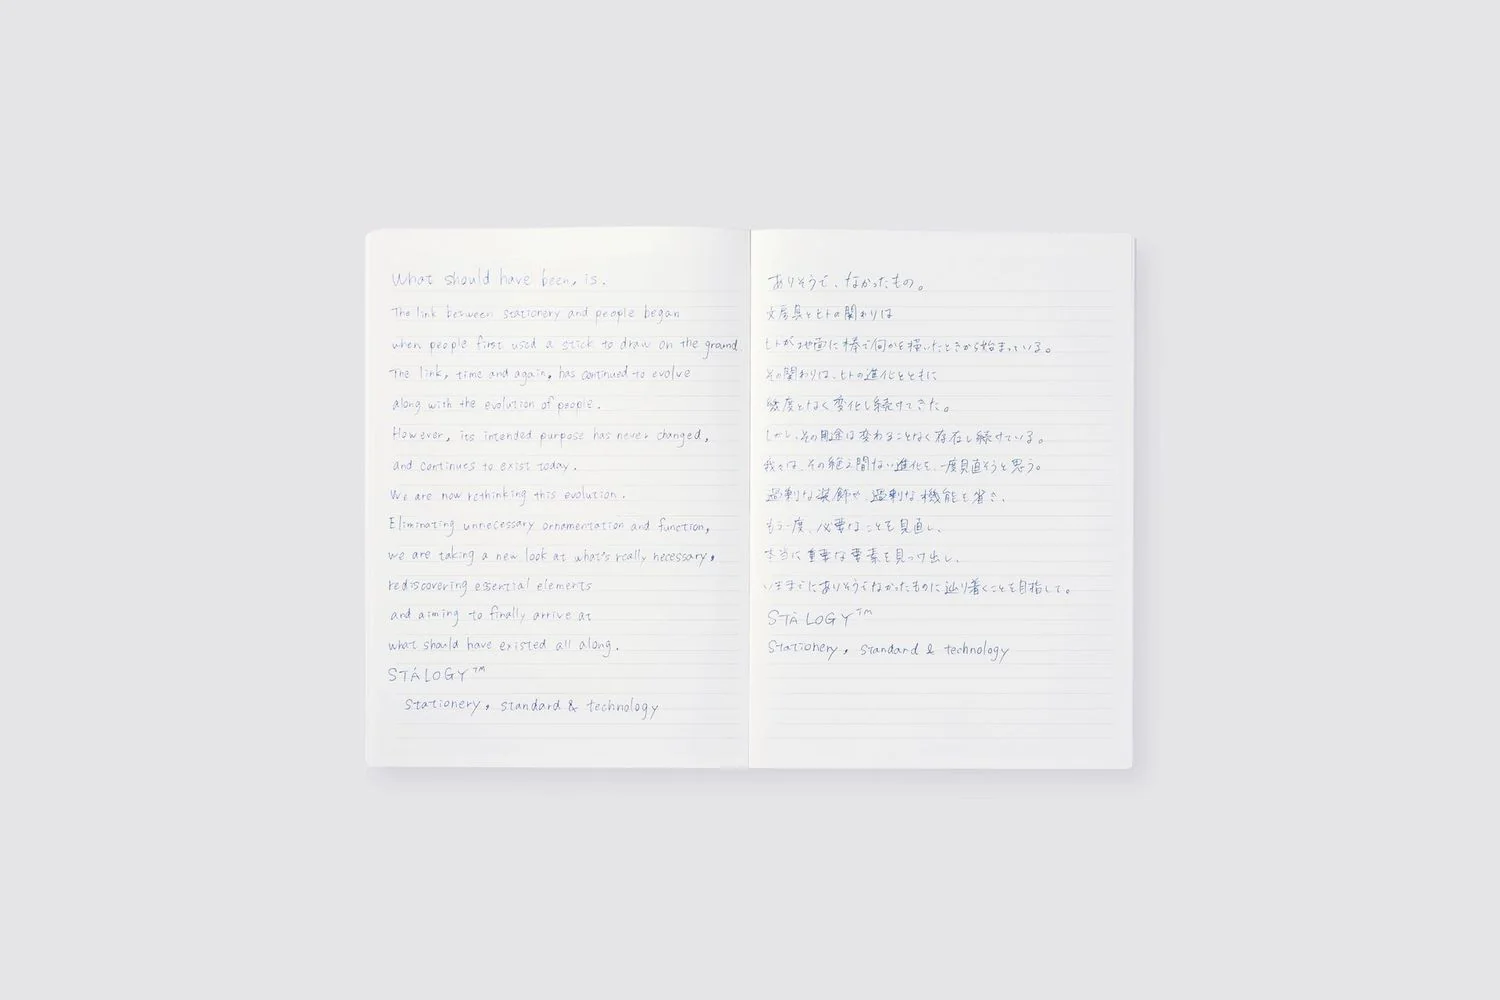 What should have been, is.
The link between stationery and people began
when people first used a stick to draw on the ground.
The link, time and again, has continued to evolve
along with the evolution of people.
However, its intended purpose has never changed,
and continues to exist today.
We are now rethinking this evolution.
Eliminating unnecessary ornamentation and function,
we are taking a new look at what's really necessary,
rediscovering essential elements
and aiming to finally arrive at
what should have existed all along.
STÁLOGY™
Stationery, standard & technology
ありそうで、なかったもの。
文房具とヒトの関わりは
ヒトが地面に棒で何かを描いたときから始まっている。
その関わりは、ヒトの進化とともに
幾度となく変化し続けてきた。
しかし、その用途は変わることなく存在し続けている。
我々は、その絶え間ない進化を、一度見直そうと思う。
過剰な装飾や、過剰な機能を省き、
もう一度、必要なことを見直し、
本当に重要な要素を見つけ出し、
いままでにありそうでなかったものに辿り着くことを目指して。
STÁLOGY™
Stationery, standard & technology